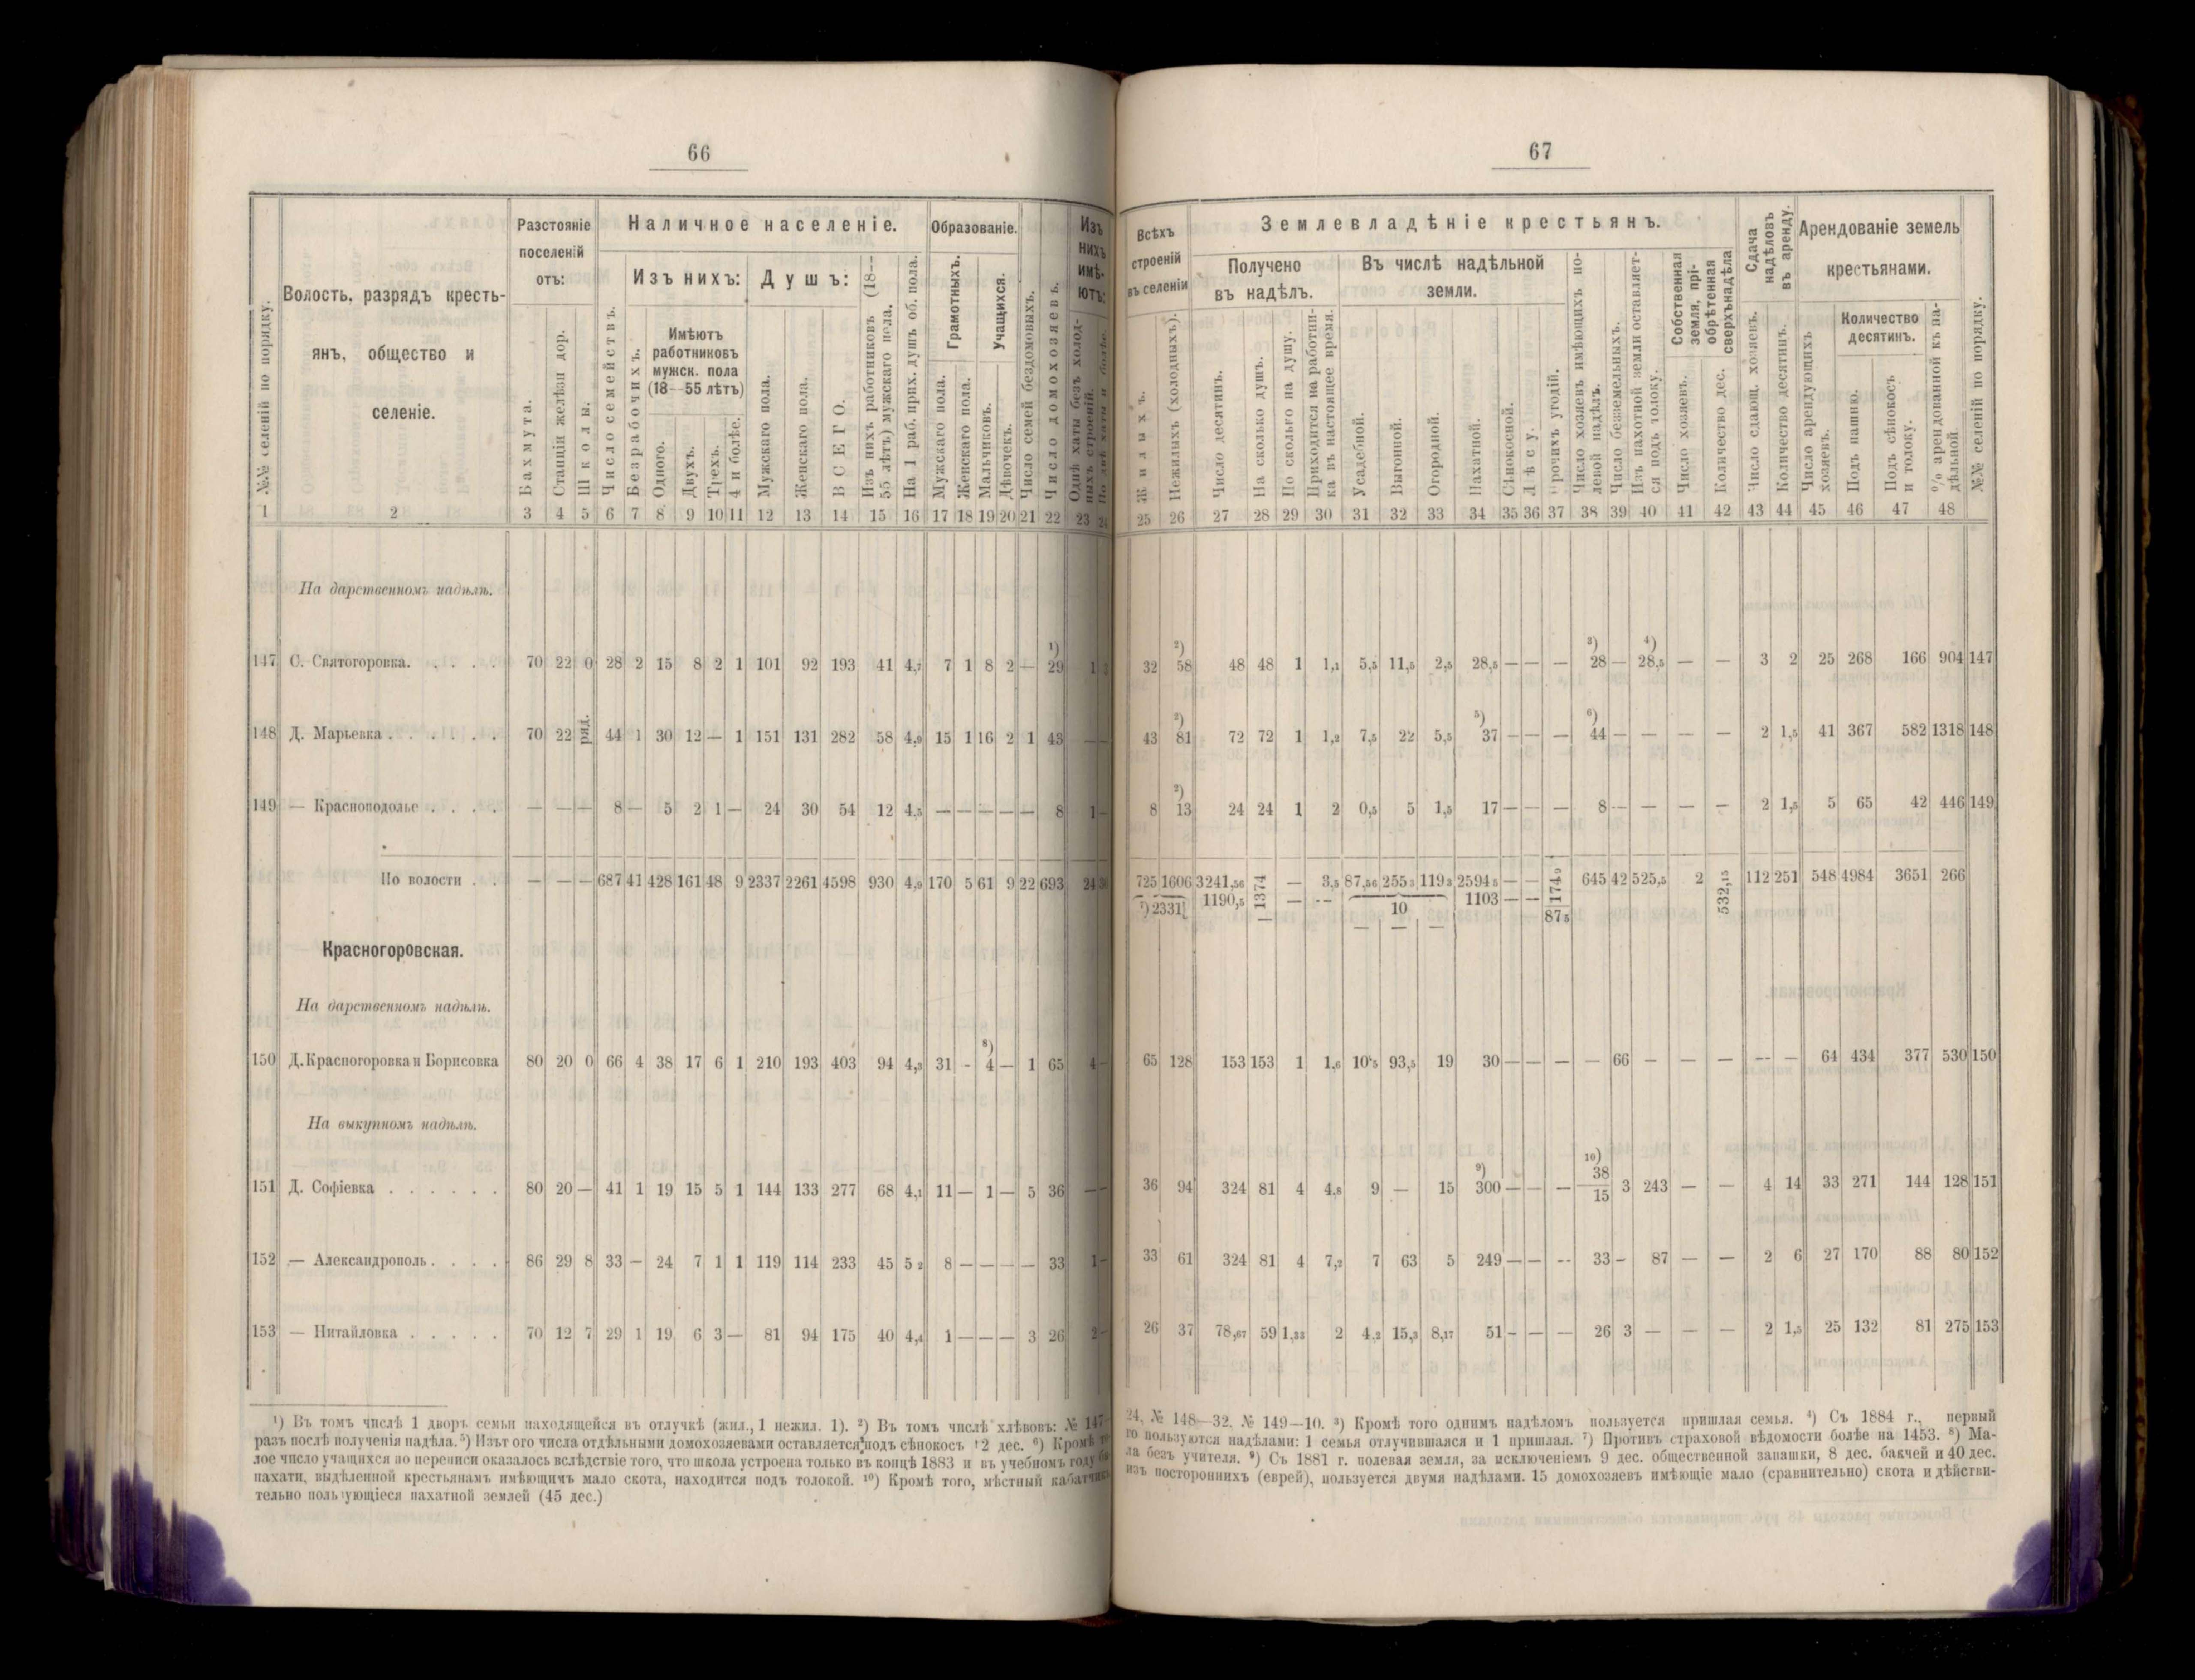 66
№№ селеній по порядку.
Волость, разрядъ кресть-
янъ, общество и
селеніе.
Разстояніе
поселеній
отъ:
Бахмута.
Станціи желѣзн дор.
Школы.
Наличное населеніе.
Число семействъ.
Изъ нихъ:
Безрабочихъ.
Имѣютъ
работниковъ
мужск. пола
(18—55 лѣтъ)
Одного.
Двухъ.
Трехъ.
4 и болѣе.
Душъ:
Мужскаго пола.
Женскаго пола.
ВСЕГО.
Изъ нихъ работниковъ (18—
55 лѣтъ) мужскаго пола.
На 1 раб. прих. душъ об. пола.
Образованіе.
Грамотныхъ.
Учащихся.
Мужскаго пола.
Женскаго пола.
Мальчиковъ.
Дѣвочекъ.
Число семей бездомовыхъ.
Число домохозяевъ.
Изъ
нихъ
имѣ-
ютъ:
Однѣ хаты безъ холод-
ныхъ строеній.
По двѣ хаты и болѣе.
1 2 3 4 5 6 7 8 9 10 11 12 13 14 15 16 17 18 19 20 21 22 23 24
На дарственномъ надѣлѣ.
147 С. Святогоровка. . . . . 70 22 0 28 2 15 8 2 1 101 92 193 41 4,7 7 1 8 2 — ¹) 29 1
148 Д. Марьевка . . . . . . 70 22 ряд. 44 1 30 12 — 1 151 131 282 58 4,9 15 1 16 2 1 43 — —
149 — Красноподолье . . . . — — — 8 — 5 2 1 — 24 30 54 12 4,5 — — — — — 8 1 —
По волости . . — — — 687 41 428 161 48 9 2337 2261 4598 930 4,9 170 5 61 9 22 693 24
Красногоровская.
На дарственномъ надѣлѣ.
150 Д. Красногоровка и Борисовка 80 20 0 66 4 38 17 6 1 210 193 403 94 4,3 31 - ⁸) 4 — 1 65 4 —
На выкупномъ надѣлѣ.
151 Д. Софіевка . . . . . . 80 20 — 41 1 19 15 5 1 144 133 277 68 4,1 11 — 1 — 5 36 — —
152 — Александрополь . . . . 86 29 8 33 — 24 7 1 1 119 114 233 45 5 2 8 — — — — 33 1 —
153 — Нитайловка . . . . . 70 12 7 29 1 19 6 3 — 81 94 175 40 4,4 1 — — — 3 26 2 —
¹) Въ томъ числѣ 1 дворъ семьи находящейся въ отлучкѣ (жил., 1 нежил. 1). ²) Въ томъ числѣ хлѣвовъ: № 147—
разъ послѣ полученія надѣла. ⁵) Изът ого числа отдѣльными домохозяевами оставляется подъ сѣнокосъ 12 дес. ⁶) Кромѣ то-
лое число учащихся по переписи оказалось вслѣдствіе того, что школа устроена только въ концѣ 1883 и въ учебномъ году
пахати, выдѣленной крестьянамъ имѣющимъ мало скота, находится подъ толокой. ¹⁰) Кромѣ того, мѣстный кабатчикъ
тельно пользующіеся пахатной землей (45 дес.)
67
Всѣхъ
строеній
въ селеніи
Жилыхъ.
Нежилыхъ (холодныхъ).
Землевладѣніе крестьянъ.
Получено
въ надѣлъ.
Число десятинъ.
На сколько душъ.
По сколько на душу.
Приходится на работни-
ка въ настоящее время.
Въ числѣ надѣльной
земли.
Усадебной.
Выгонной.
Огородной.
Пахатной.
Сѣнокосной.
Лѣсу.
Прочихъ угодій.
Число хозяевъ имѣющихъ по-
левой надѣлъ.
Число безземельныхъ.
Изъ пахотной земли оставляет-
ся подъ толоку.
Собственная
земля, прі-
обрѣтенная
сверхънадѣла
Число хозяевъ.
Количество дес.
Сдача
надѣловъ
въ аренду.
Число сдающ. хозяевъ.
Количество десятинъ.
Арендованіе земель
крестьянами.
Число арендующихъ
хозяевъ.
Количество
десятинъ.
Подъ пашню.
Подъ сѣнокосъ
и толоку.
% арендованной къ на-
дѣльной.
№№ селеній по порядку.
25 26 27 28 29 30 31 32 33 34 35 36 37 38 39 40 41 42 43 44 45 46 47 48
32 ²) 58 48 48 1 1,1 5,5 11,5 2,5 28,5 — — — ³) 28 — ⁴) 28,5 — — 3 2 25 268 166 904 147
43 ²) 81 72 72 1 1,2 7,5 22 5,5 ⁵) 37 — — — ⁶) 44 — — — — 2 1,5 41 367 582 1318 148
8 ²) 13 24 24 1 2 0,5 5 1,5 17 — — — 8 — — — — 2 1,5 5 65 42 446 149
725 1606 3241,56 1374 — 3,5 87,56 255 3 119 3 2594 5 — — 174 9 645 42 525,5 2 532,15 112 251 548 4984 3651 266
⁷) 2331 1190,5 — — -- 10 1103 — -- 87 5
— — —
65 128 153 153 1 1,6 10 5 93,5 19 30 — — — — 66 — — — -- — 64 434 377 530 150
36 94 324 81 4 4,8 9 — 15 ⁹) 300 — — — ¹⁰) 38/15 3 243 — — 4 14 33 271 144 128 151
33 61 324 81 4 7,2 7 63 5 249 — — -- 33 - 87 — — 2 6 27 170 88 80 152
26 37 78,67 59 1,33 2 4,2 15,3 8,17 51 - — — 26 3 — — — 2 1,5 25 132 81 275 153
24, № 148—32. № 149—10. ³) Кромѣ того однимъ надѣломъ пользуется пришлая семья. ⁴) Съ 1884 г., первый
го пользуются надѣлами: 1 семья отлучившаяся и 1 пришлая. ⁷) Противъ страховой вѣдомости болѣе на 1453. ⁸) Ма-
ла безъ учителя. ⁹) Съ 1881 г. полевая земля, за исключеніемъ 9 дес. общественной запашки, 8 дес. бакчей и 40 дес.
изъ постороннихъ (еврей), пользуется двумя надѣлами. 15 домохозяевъ имѣющіе мало (сравнительно) скота и дѣйстви-